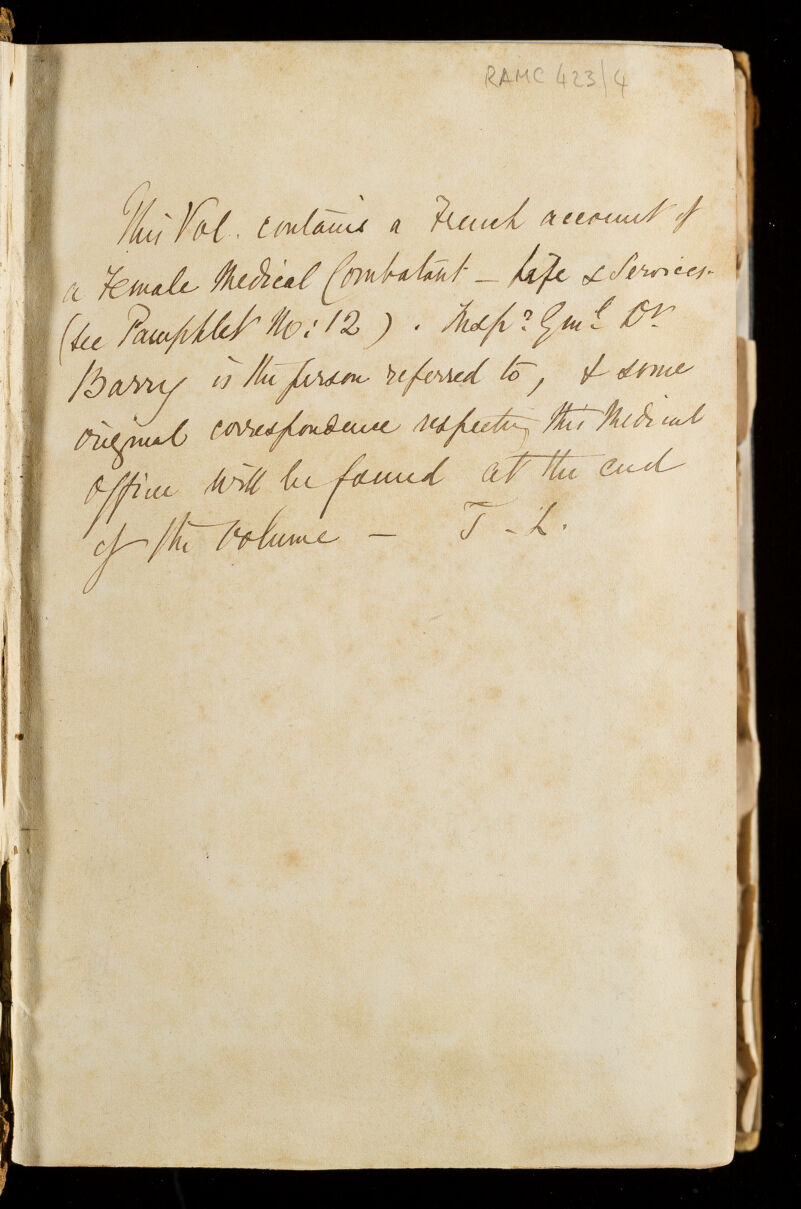 RAMC 423/4
This Vol. contains a French account of
a Female Medical Combatant — Life & Services.
(see Pamphlet No: 12). Inspr. Genl. Dr.
Barry is the person referred to, & some
original correspondence respecting this Medical
Officer will be found at the end
of the volume — T. L.